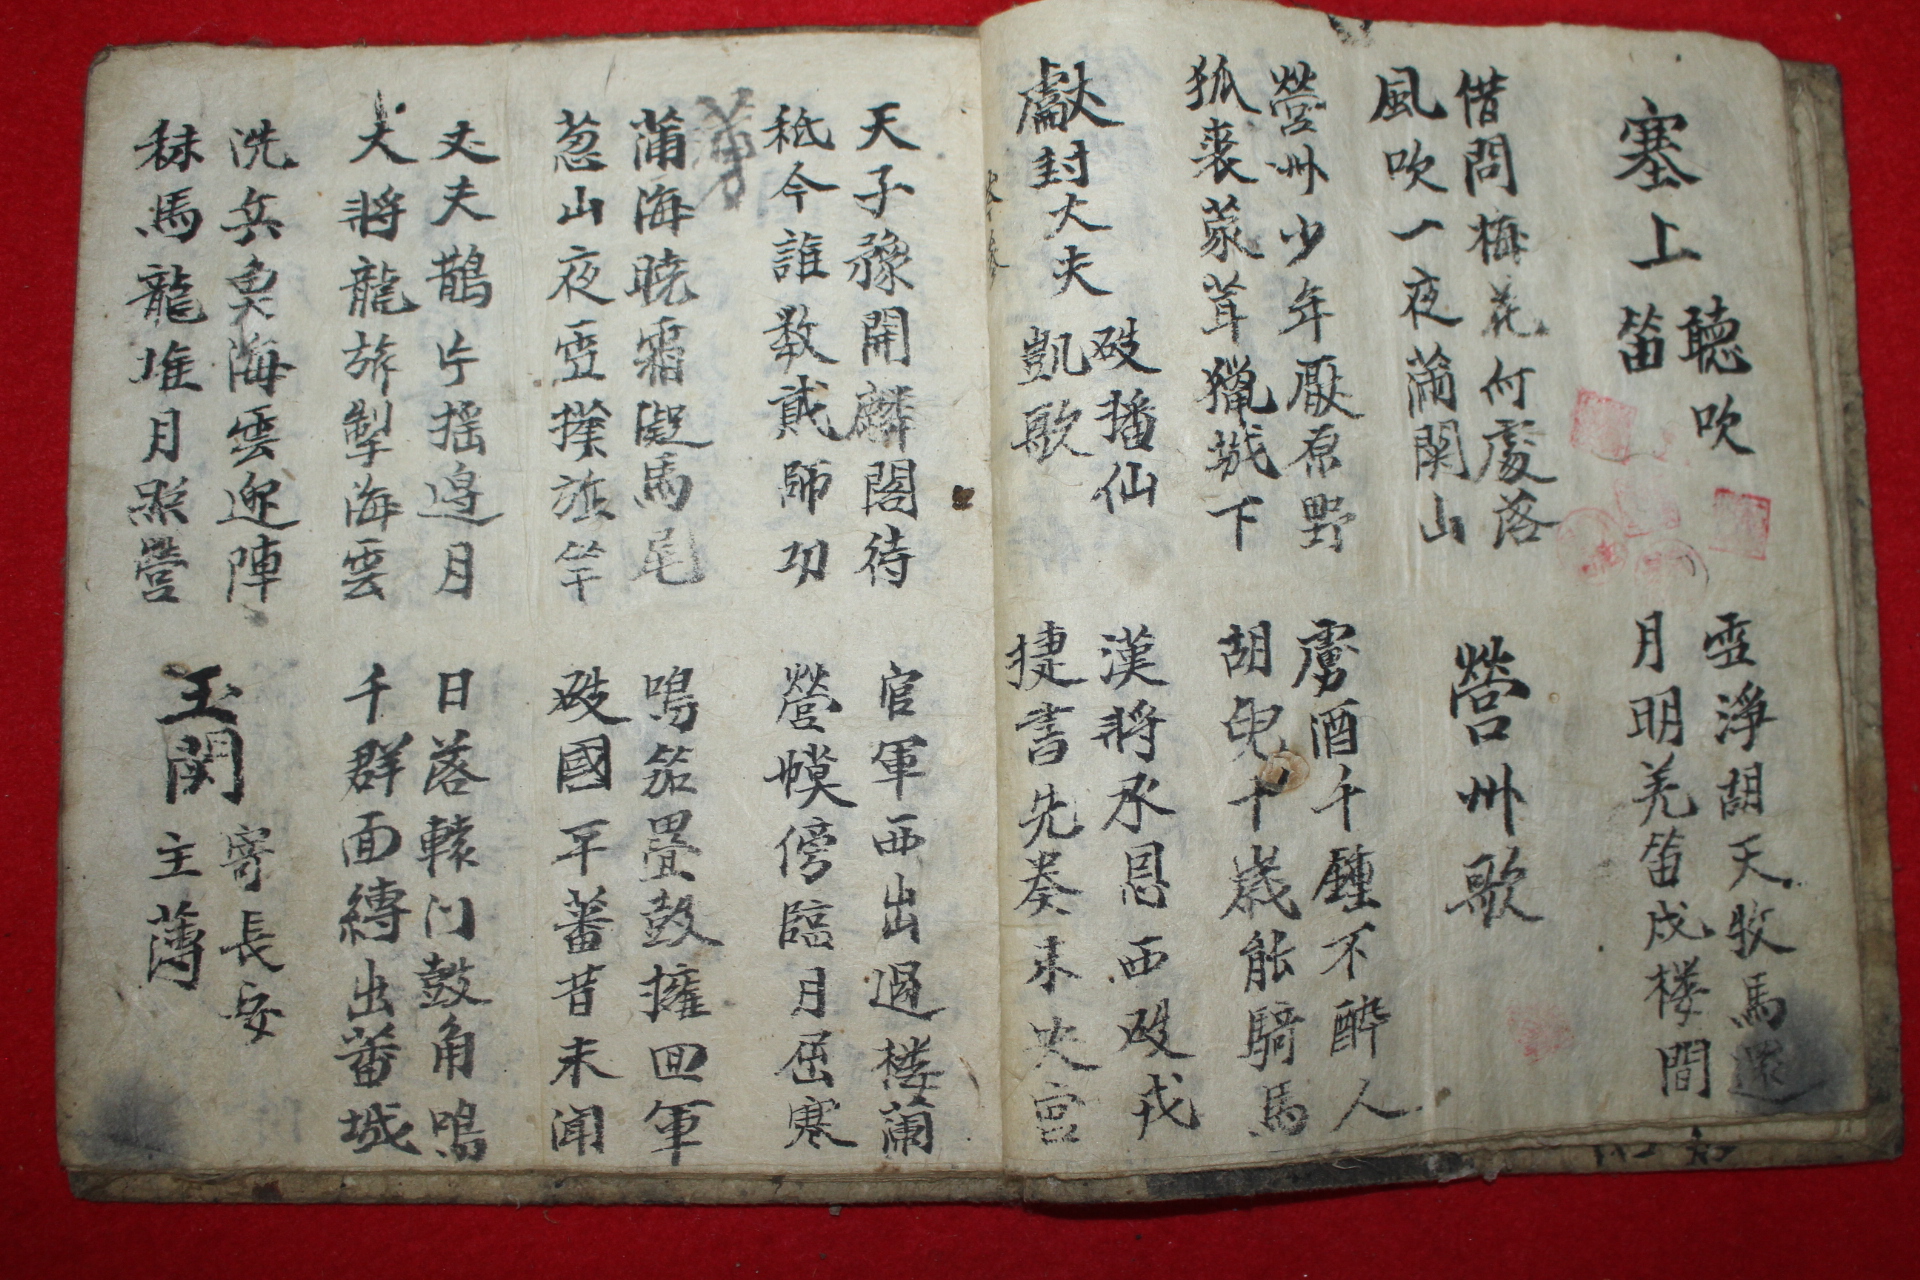 塞上
聽吹
笛
雪淨胡天牧馬還
月明羌笛戍楼間
借問梅花何處落
風吹一夜滿關山
營州歌
營州少年厭原野
狐裘蒙茸獵城下
虜酒千鍾不醉人
胡兒十歲能騎馬
獻封大夫
破播仙
凱歌
漢將承恩西破戎
捷書先奏未央宮
天子豫開麟閣待
秪今誰數貳師功
官軍西出過楼蘭
營幙傍臨月窟寒
蒲海曉霜凝馬尾
葱山夜雪撲旌竿
鳴笳疊鼓擁回軍
破國平蕃昔未聞
丈夫鵲片搖邊月
大將龍旂掣海雲
日落轅門鼓角鳴
千群面縛出蕃城
洗兵魚海雲迎陣
秣馬龍堆月照營
玉関
寄長安
主薄